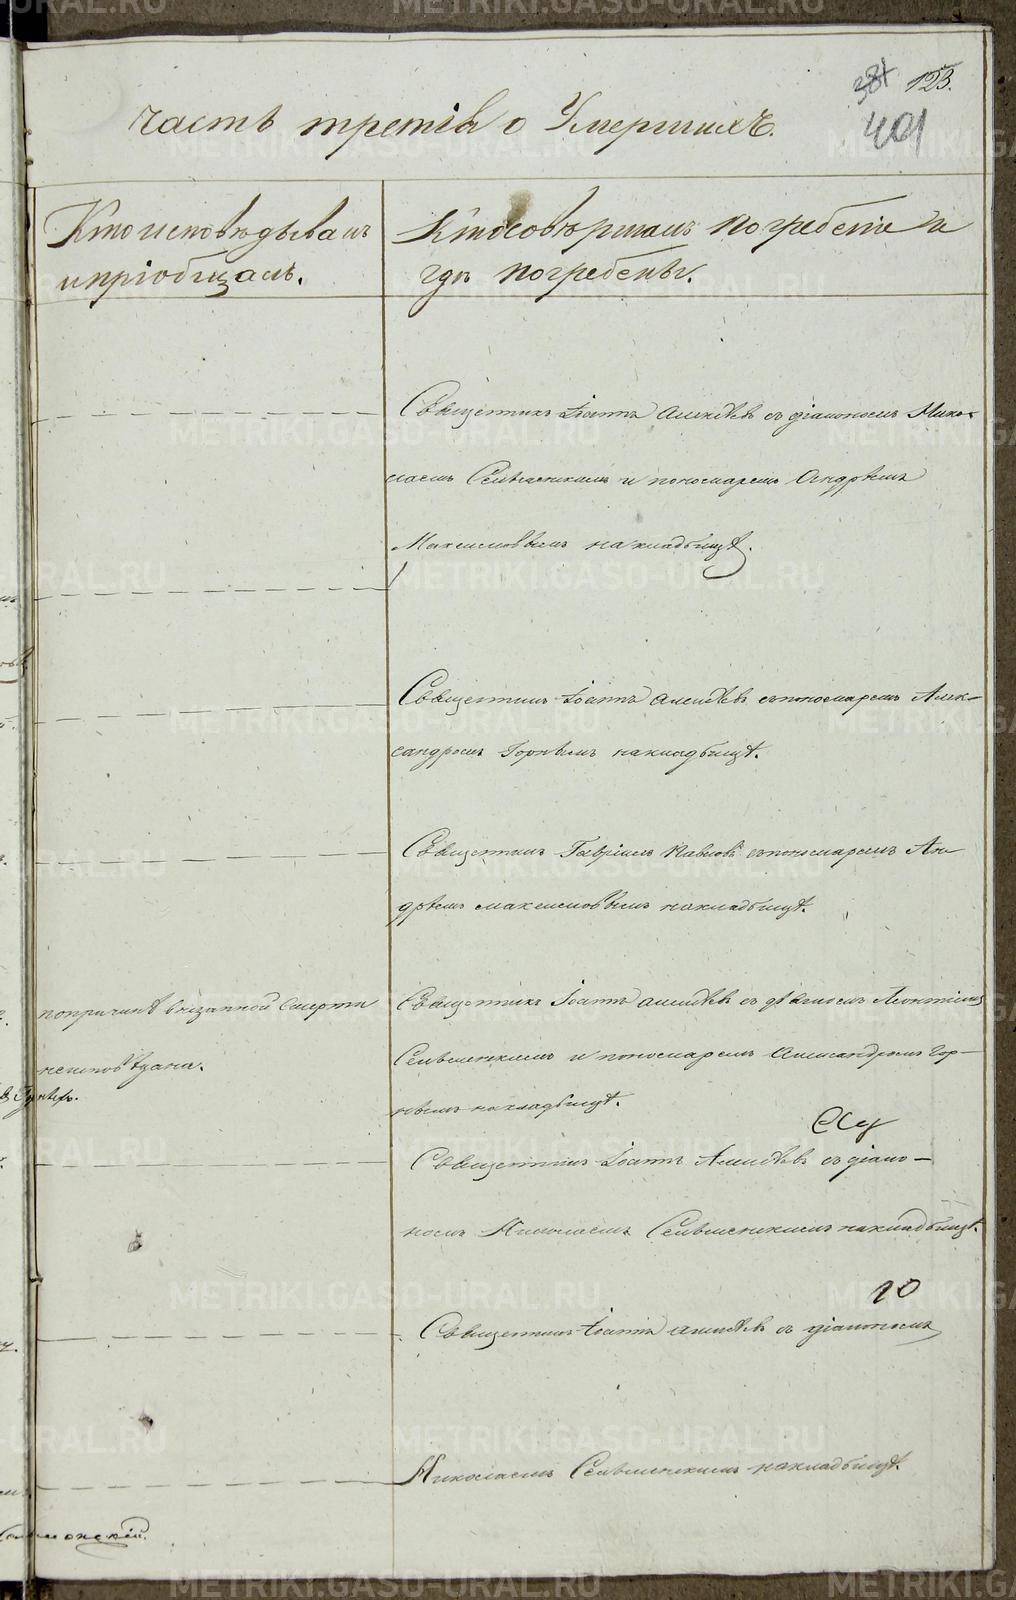 381 123.
401
Часть третія о Умершихъ.
Кто исповѣдывалъ
и пріобщалъ.
Кто совѣршалъ погребеніе и
гдѣ погребены.
Священникъ Іоаннъ Алексѣевъ съ діакономъ Нико-
лаемъ Селменскимъ и пономаремъ Андрѣемъ
Максимовымъ на кладбищѣ.
Священникъ Іоаннъ Алексѣевъ съ пономаремъ Алек-
сандромъ Горнымъ на кладбищѣ.
Священникъ Гавріилъ Павловъ съ пономаремъ Ан-
дрѣемъ Максимовымъ на кладбищѣ.
по причинѣ внезапной смерти
неисповѣдана.
Священникъ Іоаннъ Алексѣевъ съ діакономъ Леонтіемъ
и пономаремъ Александромъ Гор-
нымъ на кладбищѣ.
Священникъ Іоаннъ Алексѣевъ съ діако-
номъ Николаемъ Селменскимъ на кладбищѣ.
Священникъ Іоаннъ Алексѣевъ съ діакономъ
Николаемъ Селменскимъ на кладбищѣ.
METRIKI.GASO-URAL.RU